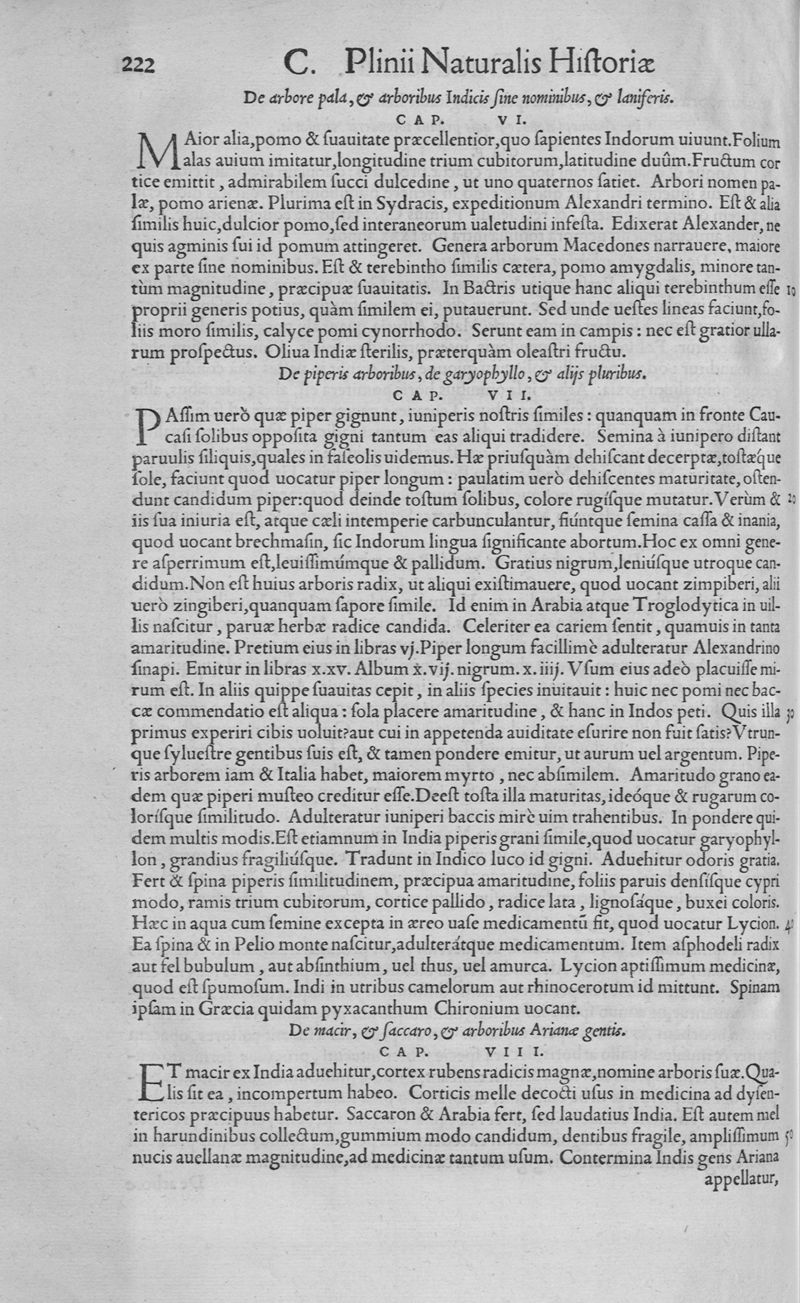 222 C. Plinii Naturalis Hiſtoriæ
De arbore pala, & arboribus Indicis ſine nominibus, & laniferis.
CAP. VI.
MAior alia,pomo & ſuauitate præcellentior,quo ſapientes Indorum uiuunt.Folium
alas auium imitatur,longitudine trium cubitorum,latitudine duûm.Fructum cor
tice emittit , admirabilem ſucci dulcedine , ut uno quaternos ſatiet. Arbori nomen pa-
læ, pomo arienæ. Plurima eſt in Sydracis, expeditionum Alexandri termino. Eſt & alia
ſimilis huic,dulcior pomo,ſed interaneorum ualetudini infeſta. Edixerat Alexander, ne
quis agminis ſui id pomum attingeret. Genera arborum Macedones narrauere, maiore
ex parte ſine nominibus. Eſt & terebintho ſimilis cætera, pomo amygdalis, minore tan-
tùm magnitudine, præcipuæ ſuauitatis. In Bactris utique hanc aliqui terebinthum eſſe 10
proprii generis potius, quàm ſimilem ei, putauerunt. Sed unde ueſtes lineas faciunt,fo-
liis moro ſimilis, calyce pomi cynorrhodo. Serunt eam in campis : nec eſt gratior ulla-
rum proſpectus. Oliua Indiæ ſterilis, præterquàm oleaſtri fructu.
De piperis arboribus, de garyophyllo, & alijs pluribus.
CAP. VII.
PAſſim uerò quæ piper gignunt, iuniperis noſtris ſimiles : quanquam in fronte Cau-
caſi ſolibus oppoſita gigni tantum eas aliqui tradidere. Semina à iunipero diſtant
paruulis ſiliquis,quales in faſeolis uidemus. Hæ priuſquàm dehiſcant decerptæ,toſtæq́ue
ſole, faciunt quod uocatur piper longum : paulatim uerò dehiſcentes maturitate, oſten-
dunt candidum piper:quod deinde toſtum ſolibus, colore rugíſque mutatur.Verùm & 20
iis ſua iniuria eſt, atque cæli intemperie carbunculantur, fiúntque ſemina caſſa & inania,
quod uocant brechmaſin, ſic Indorum lingua ſignificante abortum.Hoc ex omni gene-
re aſperrimum eſt,leuiſſimúmque & pallidum. Gratius nigrum,leniúſque utroque can-
didum.Non eſt huius arboris radix, ut aliqui exiſtimauere, quod uocant zimpiberi, alii
uerò zingiberi,quanquam ſapore ſimile. Id enim in Arabia atque Troglodytica in uil-
lis naſcitur , paruæ herbæ radice candida. Celeriter ea cariem ſentit , quamuis in tanta
amaritudine. Pretium eius in libras vj.Piper longum facillimè adulteratur Alexandrino
ſinapi. Emitur in libras x.xv. Album x.vij. nigrum. x. iiij. Vſum eius adeò placuiſſe mi-
rum eſt. In aliis quippe ſuauitas cepit , in aliis ſpecies inuitauit : huic nec pomi nec bac-
cæ commendatio eſt aliqua : ſola placere amaritudine , & hanc in Indos peti. Quis illa 30
primus experiri cibis uoluit?aut cui in appetenda auiditate eſurire non fuit ſatis?Vtrun-
que ſylueſtre gentibus ſuis eſt, & tamen pondere emitur, ut aurum uel argentum. Pipe-
ris arborem iam & Italia habet, maiorem myrto , nec abſimilem. Amaritudo grano ea-
dem quæ piperi muſteo creditur eſſe.Deeſt toſta illa maturitas, ideóque & rugarum co-
loríſque ſimilitudo. Adulteratur iuniperi baccis mirè uim trahentibus. In pondere qui-
dem multis modis.Eſt etiamnum in India piperis grani ſimile,quod uocatur garyophyl-
lon , grandius fragiliúſque. Tradunt in Indico luco id gigni. Aduehitur odoris gratia.
Fert & ſpina piperis ſimilitudinem, præcipua amaritudine, foliis paruis denſíſque cypri
modo, ramis trium cubitorum, cortice pallido , radice lata , lignoſáque, buxei coloris.
Hæc in aqua cum ſemine excepta in æreo uaſe medicamentū fit, quod uocatur Lycion. 40
Ea ſpina & in Pelio monte naſcitur,adulterátque medicamentum. Item aſphodeli radix
aut fel bubulum , aut abſinthium, uel thus, uel amurca. Lycion aptiſſimum medicinæ,
quod eſt ſpumoſum. Indi in utribus camelorum aut rhinocerotum id mittunt. Spinam
ipſam in Græcia quidam pyxacanthum Chironium uocant.
De macir, & ſaccaro, & arboribus Arianæ gentis.
CAP. VIII.
ET macir ex India aduehitur,cortex rubens radicis magnæ,nomine arboris ſuæ.Qua-
lis ſit ea , incompertum habeo. Corticis melle decocti uſus in medicina ad dyſen-
tericos præcipuus habetur. Saccaron & Arabia fert, ſed laudatius India. Eſt autem mel
in harundinibus collectum,gummium modo candidum, dentibus fragile, ampliſſimum 50
nucis auellanæ magnitudine,ad medicinæ tantum uſum. Contermina Indis gens Ariana
appellatur,